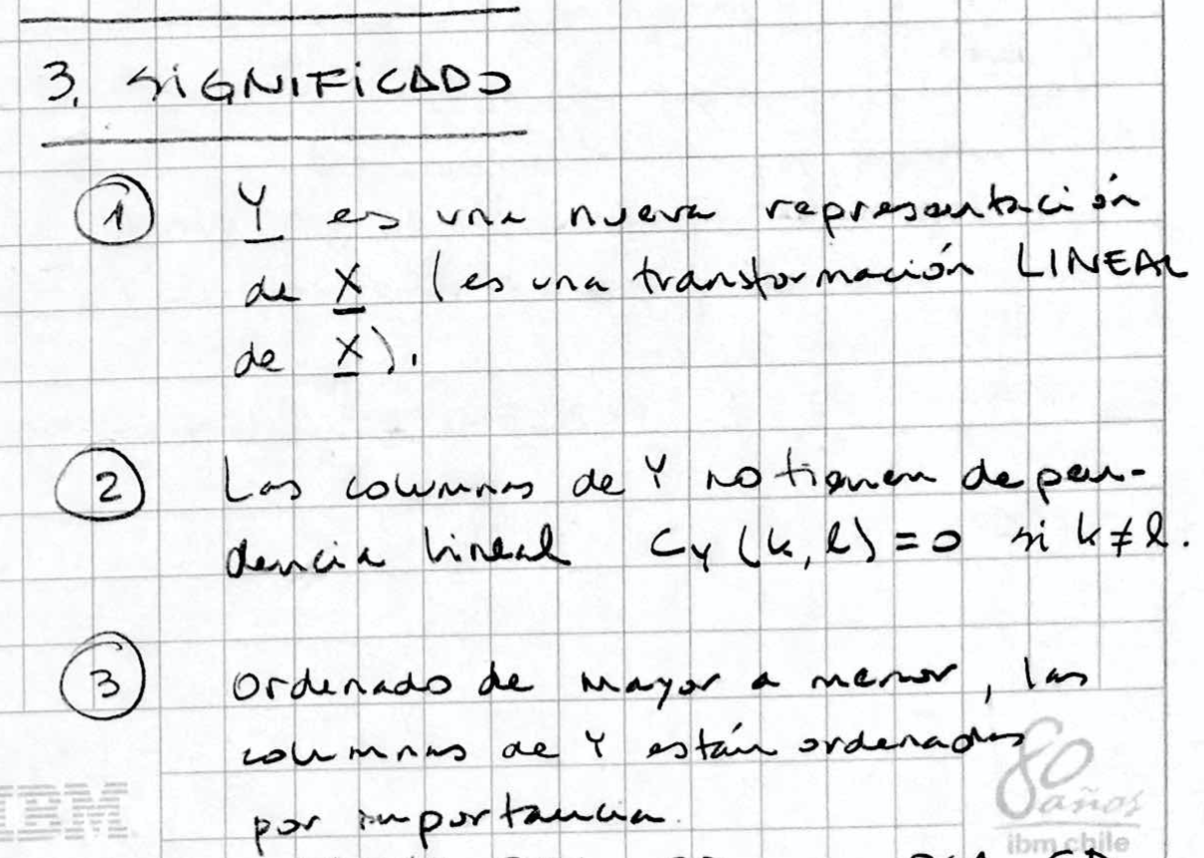 3. SIGNIFICADO
1 Y es una nueva representación
de X (es una transformación LINEAL
de X).
2 Las columnas de Y no tienen depen-
dencia lineal Cy(k, l) = 0 si k ≠ l.
3 Ordenado de mayor a menor, las
columnas de Y están ordenadas
por importancia.
IBM
80
años
ibm chile